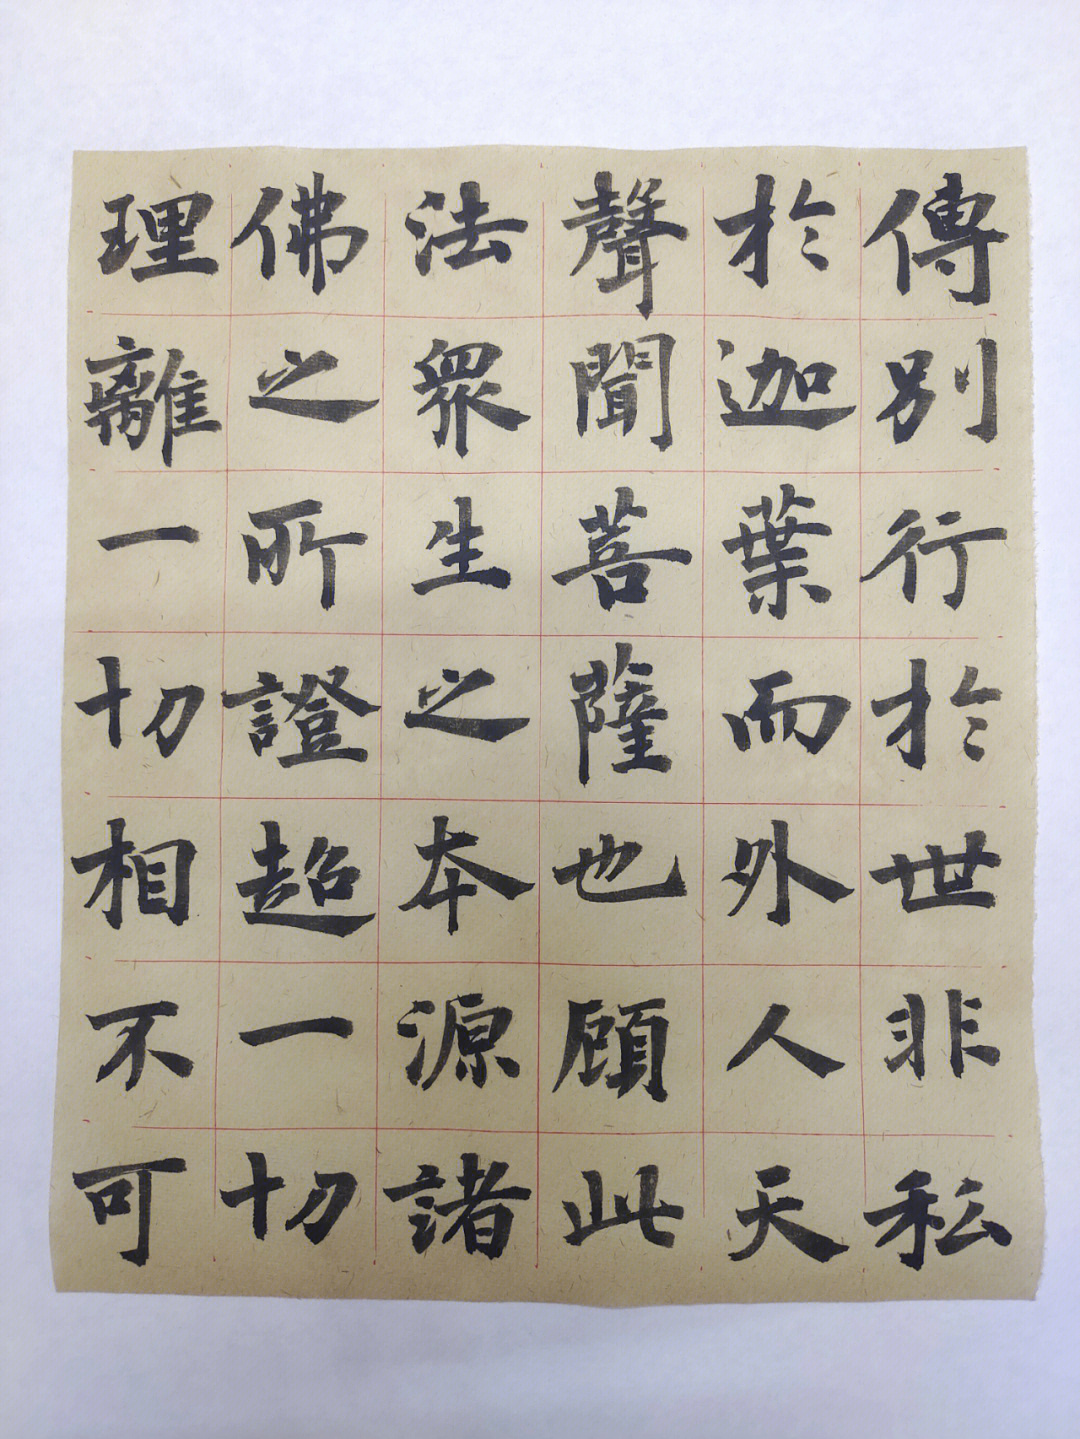 傳別行於世非私
於迦葉而外人天
聲聞菩薩也顧此
法眾生之本源諸
佛之所證超一切
理離一切相不可